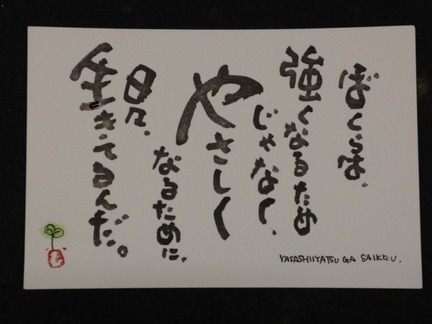 ぼくらは、
強くなるため
じゃなく、
やさしく
なるために、
日々、
生きてるんだ。
YASASHIIYATSU GA SAIKYOU.